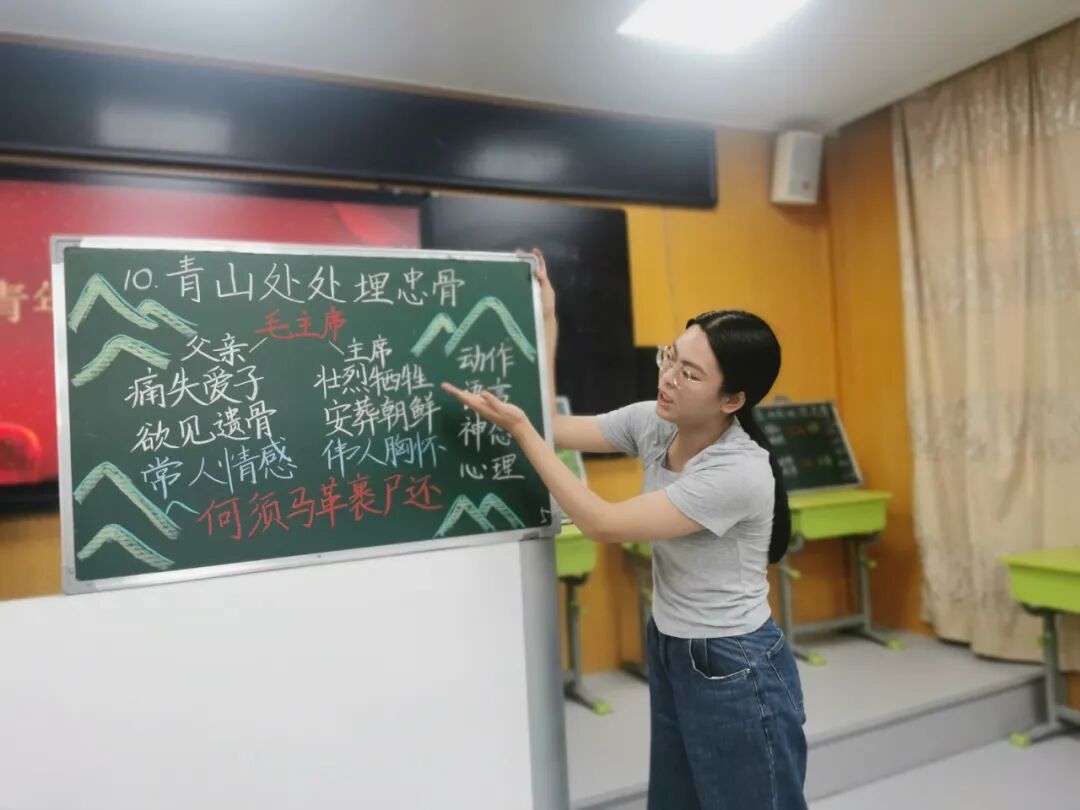 10.青山处处埋忠骨
毛主席
父亲
痛失爱子
欲见遗骨
常人情感
主席
壮烈牺牲
安葬朝鲜
伟人胸怀
动作
语言
神态
心理
何须马革裹尸还
青年